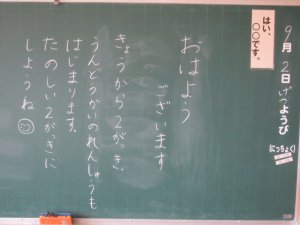 9月2日げつようび
(にっちょく)
はい、
〇〇です。
おはよう
ございます
きょうから2がっき。
うんどうかいのれんしゅうも
はじまります。
たのしい2がっきに
しようね